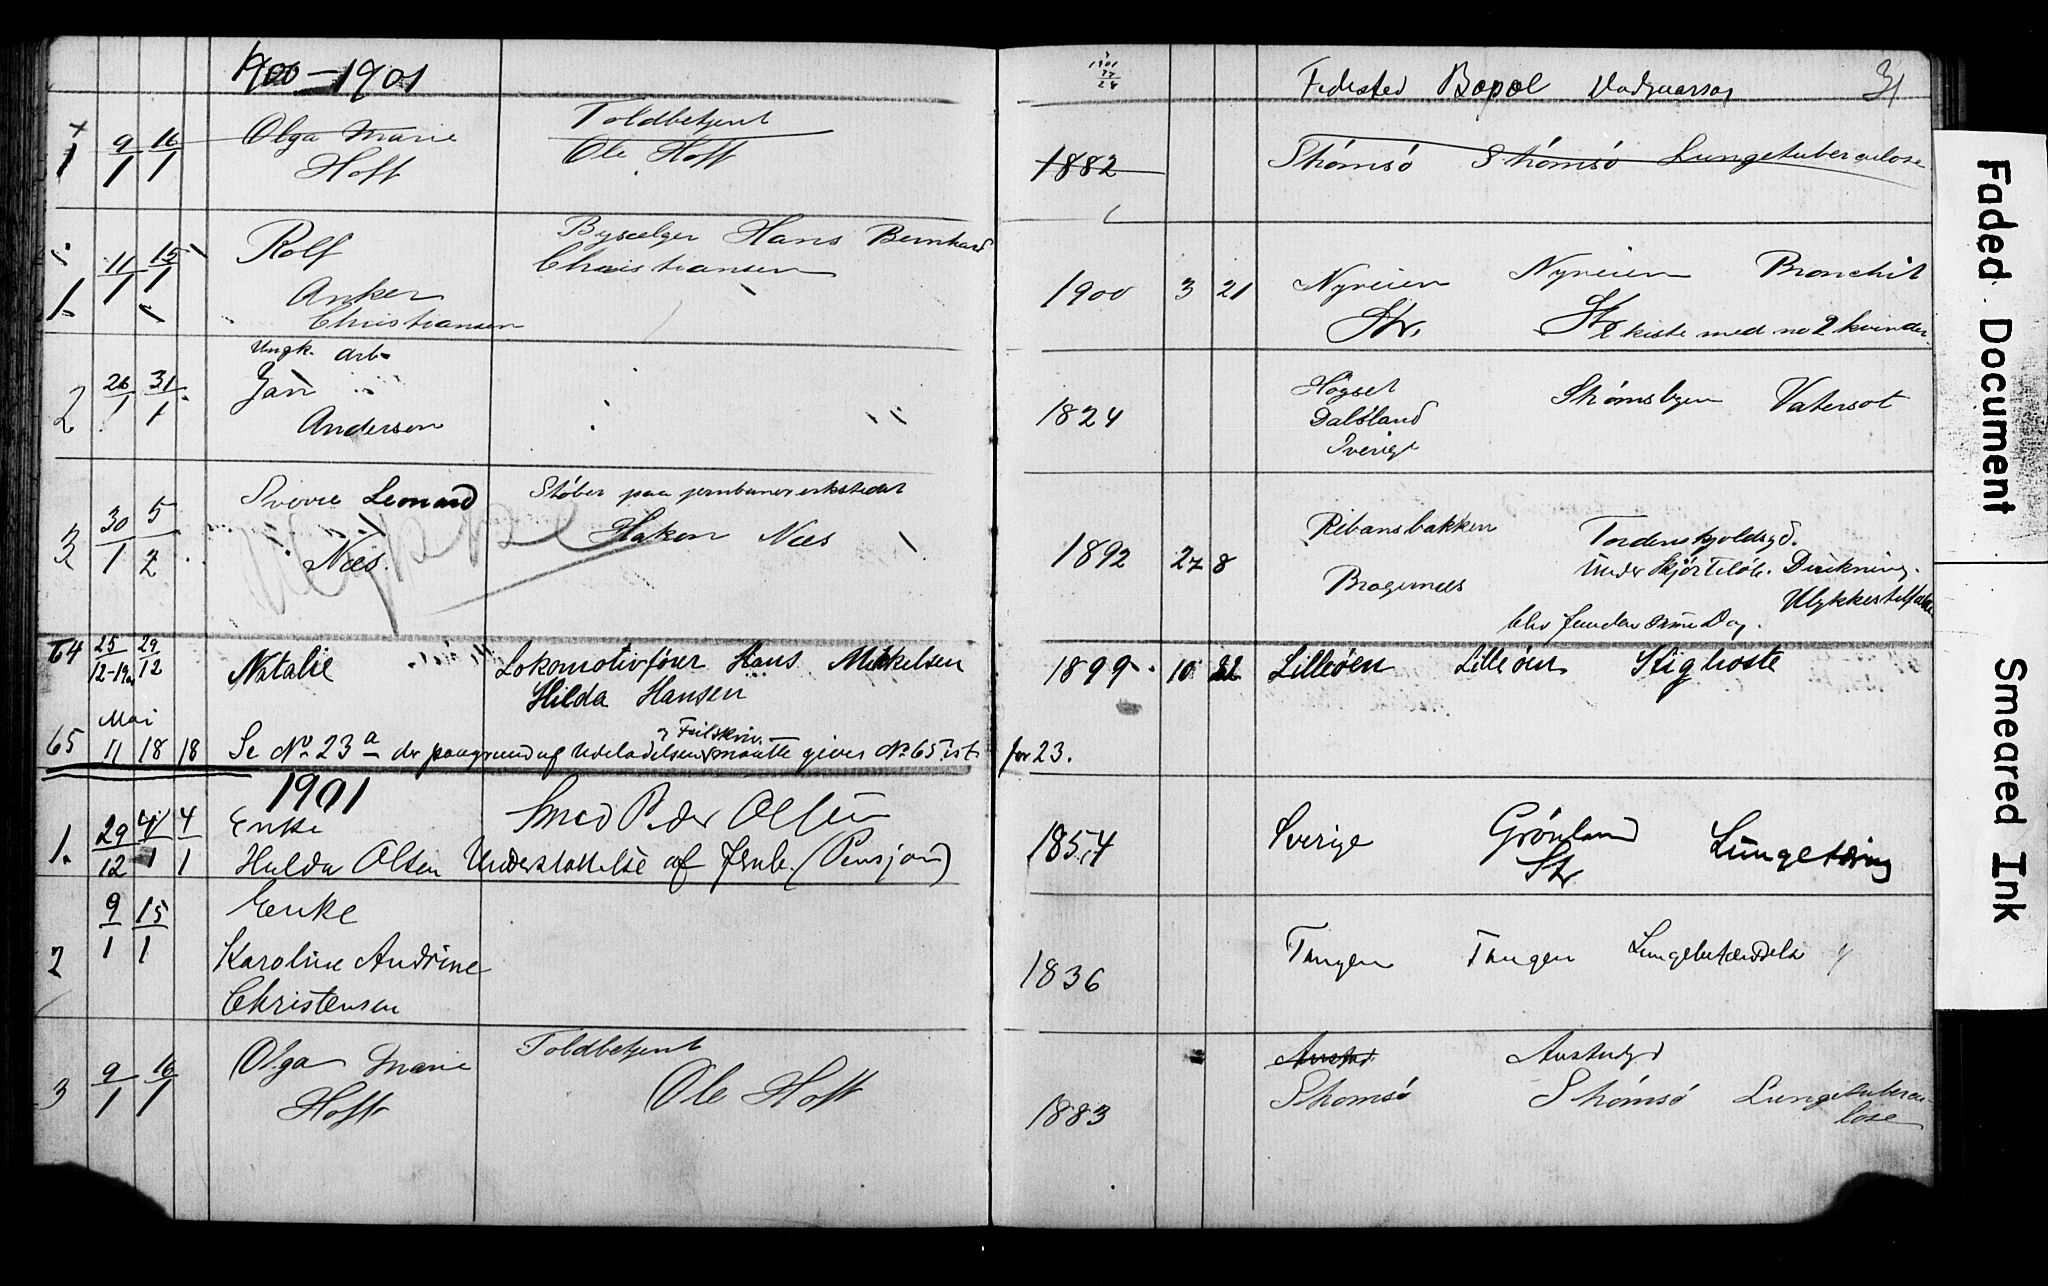 1900-1901
1901
Fødested Bopæl Dødsaarsag 31
1 9/1 16/1 Olga Marie Hoff Toldbetjent Ole Hoff 1882 Strømsö Strømsø Lungetuberculose
1. 11/1 15/1 Rolf Anker Christiansen Bysælger Hans Bernhard Christiansen 1900 3 21 Nyveien Str. Nyveien Str Bronchit
i kiste med no 2 kvinder
2 26/1 31/1 Ungk. arb. Jan Andersen 1824 Högset Dalsland Sverige Strømsbyen Vatersot
3 30/1 5/2 Sverre Leonard Næs. Støber paa jernbaneverkstedet Hakon Næs 1892 27 8 Bragernæs Tordenskjoldsgd. Under Drukning. Ulykkestilfælde
blev funden Dag.
64 25/12-1900 29/12 Natalie Lokomotivfører Hans Mikkelsen 1899. 10 22 Lilleøen Lilleøen Stighoste
Hilda Hansen
Mai
65 11 18 18 Se No 23a der paagrund af Udeladelsen & Feilskriv. maatte gives No 65 ist. for 23.
1901
1. 29/12 4/1 4/1 Enke Hulda Olsen Smed Peder Olsen 1854 Sverige Grønland Str Lungetæring
Understøttelse af Jernb. (Pensjon)
2 9/1 15/1 Enke Karoline Andrine Christensen 1836 Tangen Tangen Lungebetændelse
3 9/1 16/1 Olga Marie Hoff Toldbetjent Ole Hoff 1883 Strømsö Strømsö Lungetuberculose
Faded Document
Smeared Ink